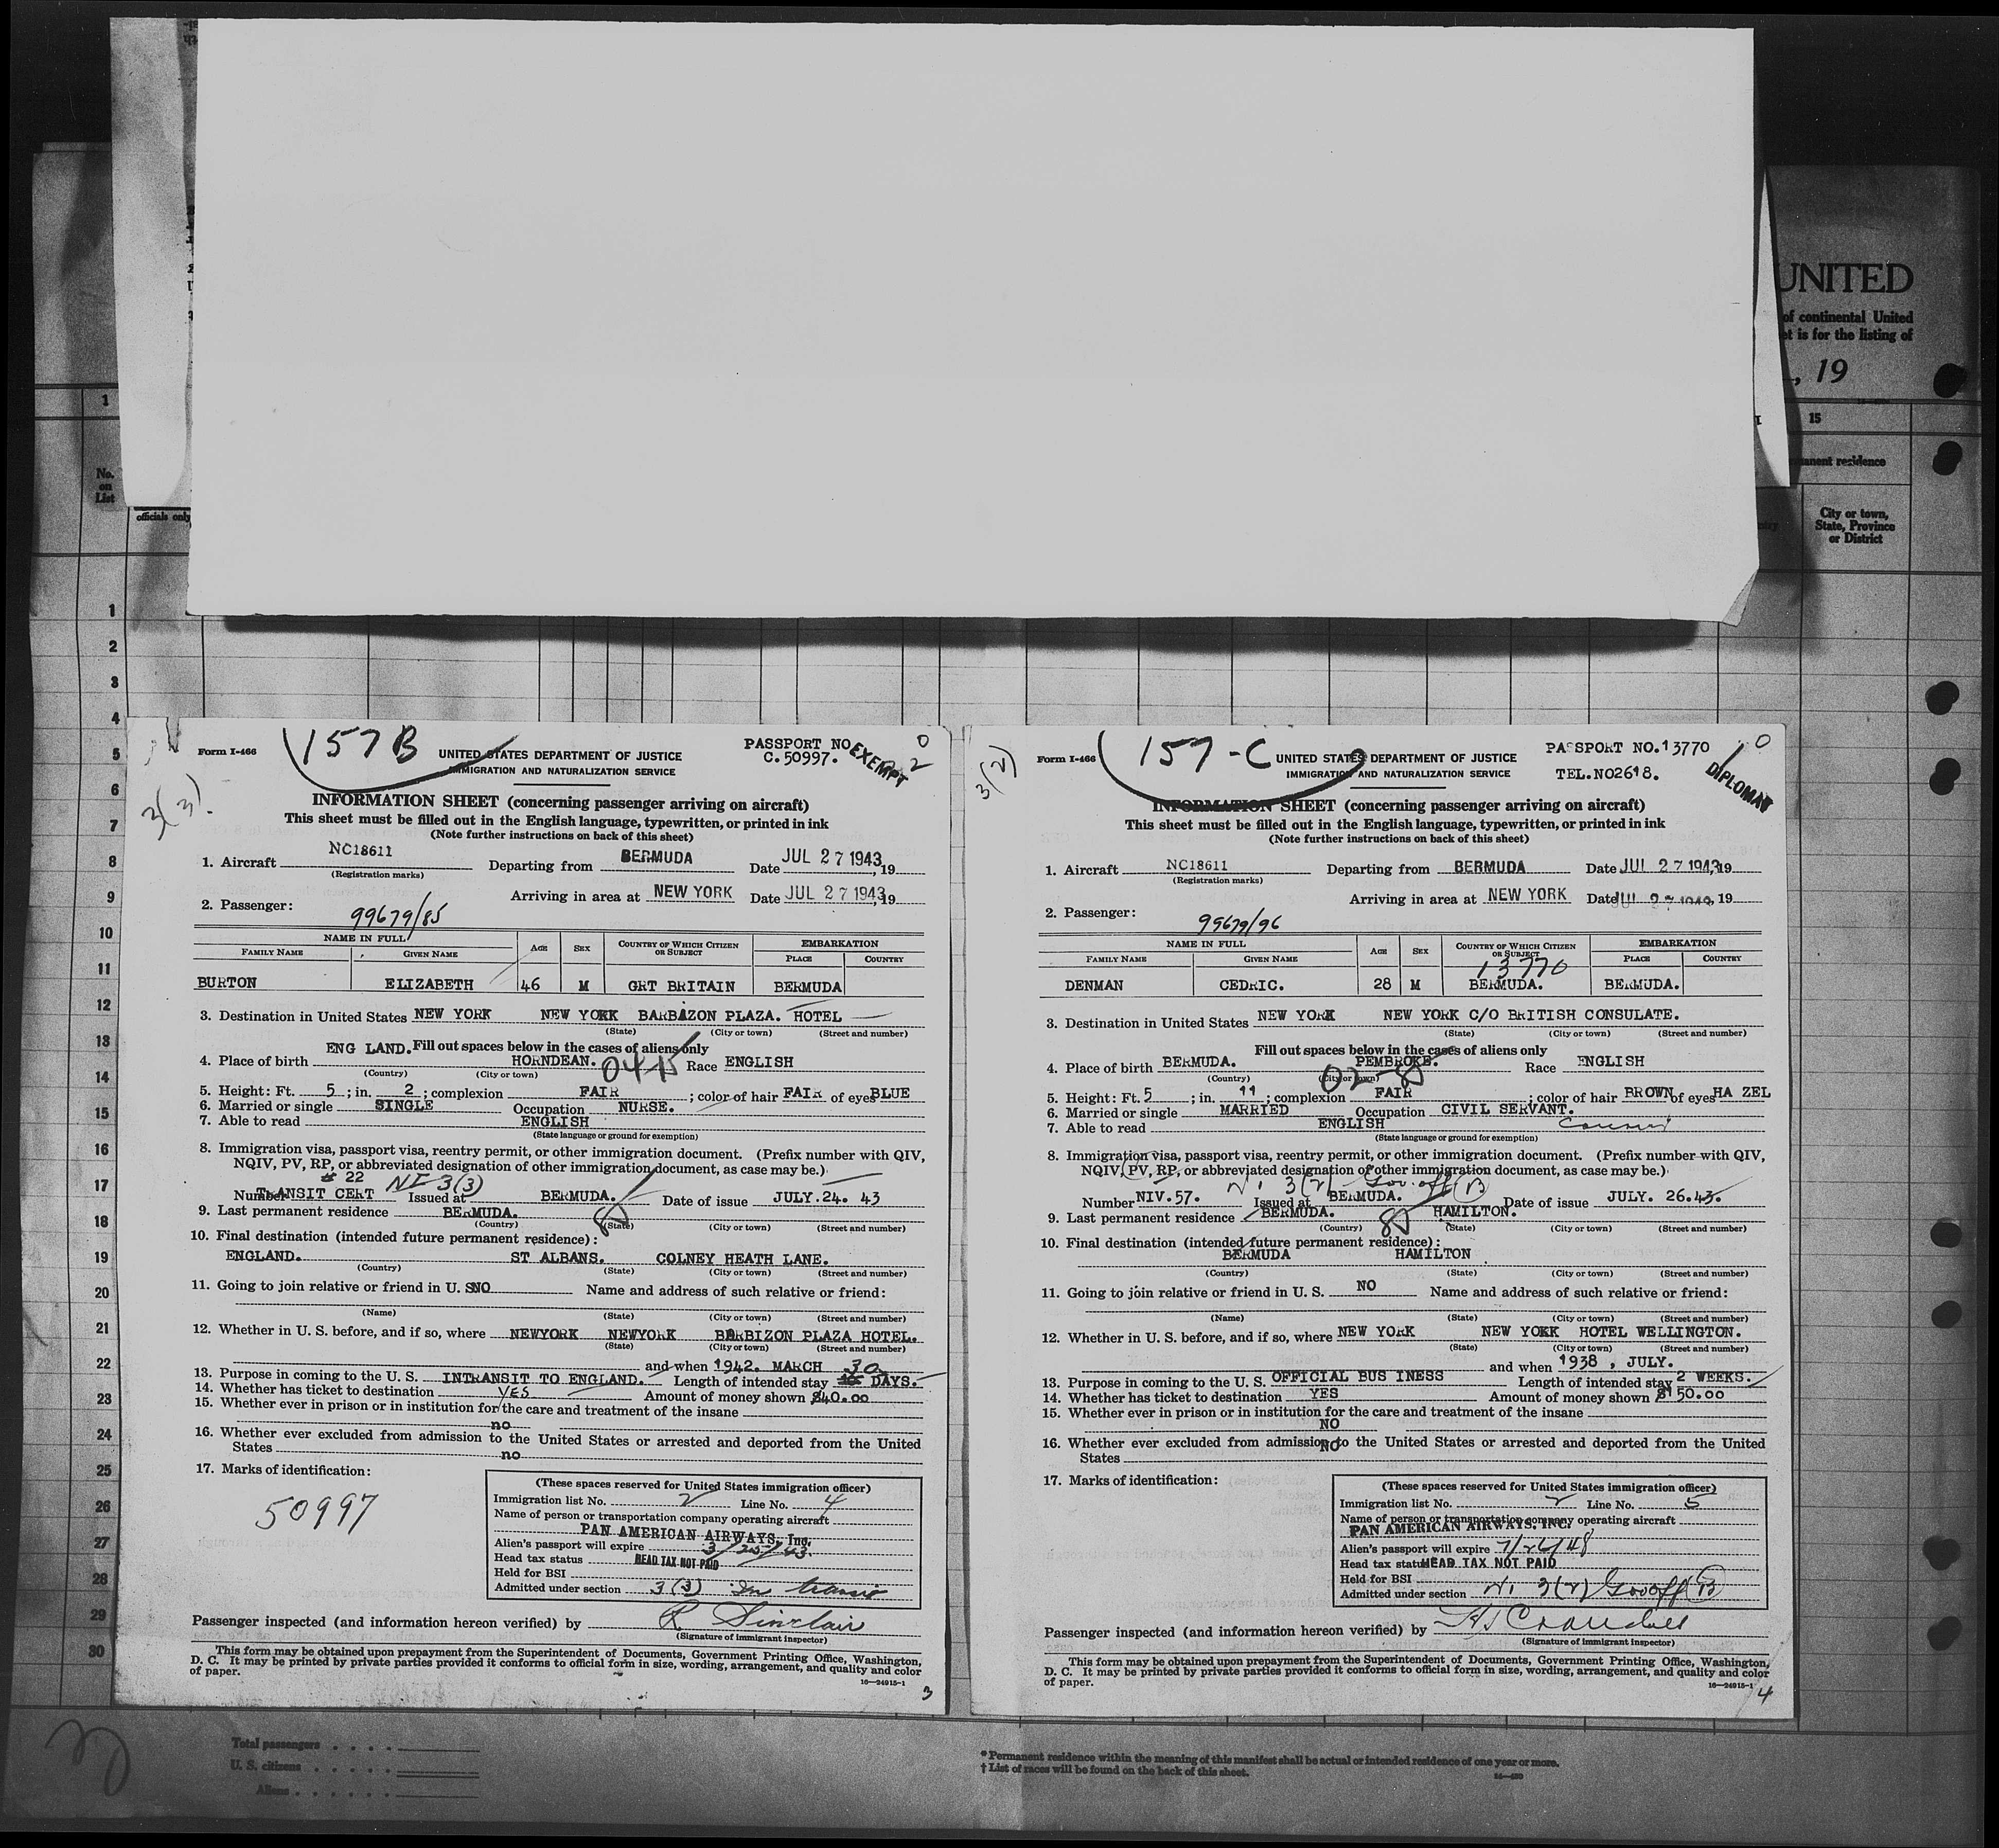 UNITED
of continental United
et is for the listing of
, 19
1
15
No.
on
List
anent residence
officials only
City or town,
State, Province
or District
1
2
3
4
5
6
7
8
9
10
11
12
13
14
15
16
17
18
19
20
21
22
23
24
25
26
27
28
29
30
3(3).
Form I-466
157 B
UNITED STATES DEPARTMENT OF JUSTICE
IMMIGRATION AND NATURALIZATION SERVICE
PASSPORT NO
C. 50997.
EXEMPT
0
2
INFORMATION SHEET (concerning passenger arriving on aircraft)
This sheet must be filled out in the English language, typewritten, or printed in ink
(Note further instructions on back of this sheet)
1. Aircraft NC18611 Departing from BERMUDA Date JUL 27 1943, 19
(Registration marks)
Arriving in area at NEW YORK Date JUL 27 1943, 19
2. Passenger: 99679/85
NAME IN FULL AGE SEX COUNTRY OF WHICH CITIZEN OR SUBJECT EMBARKATION
FAMILY NAME GIVEN NAME PLACE COUNTRY
BURTON ELIZABETH 46 M GRT BRITAIN BERMUDA
3. Destination in United States NEW YORK NEW YORK BARBIZON PLAZA. HOTEL
(State) (City or town) (Street and number)
Fill out spaces below in the cases of aliens only
4. Place of birth ENG LAND. HORNDEAN. Race ENGLISH
(Country) (City or town)
5. Height: Ft. 5 ; in. 2 ; complexion FAIR ; color of hair FAIR of eyes BLUE
6. Married or single SINGLE Occupation NURSE.
7. Able to read ENGLISH
(State language or ground for exemption)
8. Immigration visa, passport visa, reentry permit, or other immigration document. (Prefix number with QIV,
NQIV, PV, RP, or abbreviated designation of other immigration document, as case may be.)
# 22
Number TRANSIT CERT NI 3(3) Issued at BERMUDA. Date of issue JULY.24. 43
9. Last permanent residence BERMUDA.
(Country) (State) (City or town) (Street and number)
10. Final destination (intended future permanent residence):
ENGLAND. ST ALBANS. COLNEY HEATH LANE.
(Country) (State) (City or town) (Street and number)
11. Going to join relative or friend in U. S. NO Name and address of such relative or friend:
(Name) (State) (City or town) (Street and number)
12. Whether in U. S. before, and if so, where NEWYORK NEWYORK BARBIZON PLAZA HOTEL.
(State) (City or town) (Street and number)
and when 1942. MARCH
13. Purpose in coming to the U. S. INTRANSIT TO ENGLAND. Length of intended stay 30 DAYS.
14. Whether has ticket to destination YES Amount of money shown $40.00
15. Whether ever in prison or in institution for the care and treatment of the insane
no
16. Whether ever excluded from admission to the United States or arrested and deported from the United
States no
17. Marks of identification:
50997
(These spaces reserved for United States immigration officer)
Immigration list No. 2 Line No. 4
Name of person or transportation company operating aircraft
PAN AMERICAN AIRWAYS, Inc.
Alien's passport will expire
Head tax status HEAD TAX NOT PAID
Held for BSI
Admitted under section 3(3) In transit
Passenger inspected (and information hereon verified) by R Sinclair
(Signature of immigrant inspector)
This form may be obtained upon prepayment from the Superintendent of Documents, Government Printing Office, Washington,
D. C. It may be printed by private parties provided it conforms to official form in size, wording, arrangement, and quality and color
of paper.
16—24915-1
3
3(2)
Form I-466
157-C
UNITED STATES DEPARTMENT OF JUSTICE
IMMIGRATION AND NATURALIZATION SERVICE
PASSPORT NO.13770
TEL.NO2618.
DIPLOMAT
0
INFORMATION SHEET (concerning passenger arriving on aircraft)
This sheet must be filled out in the English language, typewritten, or printed in ink
(Note further instructions on back of this sheet)
1. Aircraft NC18611 Departing from BERMUDA Date JUL 27 1943, 19
(Registration marks)
Arriving in area at NEW YORK Date JUL 27 1943, 19
2. Passenger: 99679/96
NAME IN FULL AGE SEX COUNTRY OF WHICH CITIZEN OR SUBJECT EMBARKATION
FAMILY NAME GIVEN NAME PLACE COUNTRY
13770
DENMAN CEDRIC. 28 M BERMUDA. BERMUDA.
3. Destination in United States NEW YORK NEW YORK C/O BRITISH CONSULATE.
(State) (City or town) (Street and number)
Fill out spaces below in the cases of aliens only
4. Place of birth BERMUDA. PEMBROKE. Race ENGLISH
(Country) (City or town)
5. Height: Ft. 5 ; in. 11 ; complexion FAIR ; color of hair BROWN of eyes HA ZEL
6. Married or single MARRIED Occupation CIVIL SERVANT.
7. Able to read ENGLISH
(State language or ground for exemption)
8. Immigration visa, passport visa, reentry permit, or other immigration document. (Prefix number with QIV,
NQIV, PV, RP, or abbreviated designation of other immigration document, as case may be.)
Number NIV.57. Issued at BERMUDA. Date of issue JULY. 26.43.
9. Last permanent residence BERMUDA. HAMILTON.
(Country) (State) (City or town) (Street and number)
10. Final destination (intended future permanent residence):
BERMUDA HAMILTON
(Country) (State) (City or town) (Street and number)
11. Going to join relative or friend in U. S. NO Name and address of such relative or friend:
(Name) (State) (City or town) (Street and number)
12. Whether in U. S. before, and if so, where NEW YORK NEW YORK HOTEL WELLINGTON.
(State) (City or town) (Street and number)
and when 1938 , JULY.
13. Purpose in coming to the U. S. OFFICIAL BUS INESS Length of intended stay 2 WEEKS.
14. Whether has ticket to destination YES Amount of money shown $150.00
15. Whether ever in prison or in institution for the care and treatment of the insane
NO
16. Whether ever excluded from admission to the United States or arrested and deported from the United
States NO
17. Marks of identification:
(These spaces reserved for United States immigration officer)
Immigration list No. 2 Line No. 5
Name of person or transportation company operating aircraft
PAN AMERICAN AIRWAYS, INC.
Alien's passport will expire 7/26/48
Head tax status HEAD TAX NOT PAID
Held for BSI
Admitted under section NI 3(2) Gov off (B)
Passenger inspected (and information hereon verified) by
(Signature of immigrant inspector)
This form may be obtained upon prepayment from the Superintendent of Documents, Government Printing Office, Washington,
D. C. It may be printed by private parties provided it conforms to official form in size, wording, arrangement, and quality and color
of paper.
16—24915-1
4
Total passengers
U. S. citizens
Aliens
* Permanent residence within the meaning of this manifest shall be actual or intended residence of one year or more.
† List of races will be found on the back of this sheet.